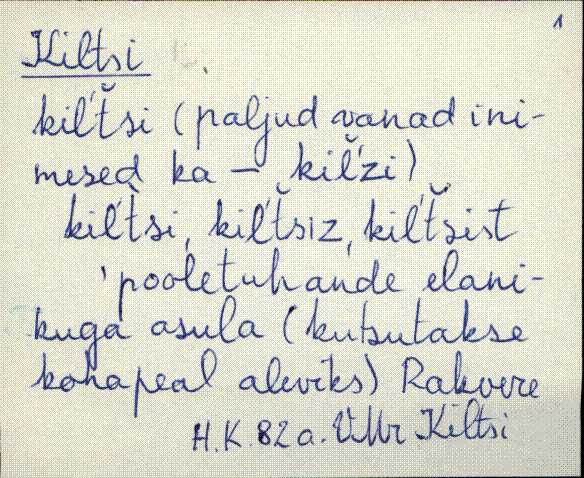 1
Kiltsi
kil't̆si (paljud vanad ini-
mesed ka – kil'z̆i)
kil't̆si, kil't̆siz, kil't̆sist
'pooletuhande elani-
kuga asula (kutsutakse
kohapeal aleviks) Rakvere
H.K. 82 a. VMr Kiltsi